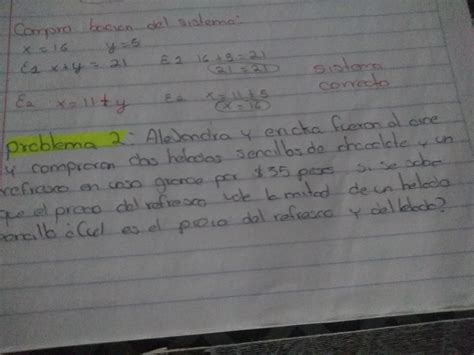 Compro bacion del sistema:
x = 16 y = 5
E1 x+y = 21 E1 16+5 = 21
(21 = 21)
sistema
correcto
E2 x = 11 + y E2 x = 11 + 5
(x = 16)
problema 2: Alejandra y ericka fueron al cine
y compraron dos helados sencillos de chocolate y un
refresco en vaso grande por $35 pesos si se sabe
que el precio del refresco vale la mitad de un helado
sencillo ¿Cual es el precio del refresco y del helado?